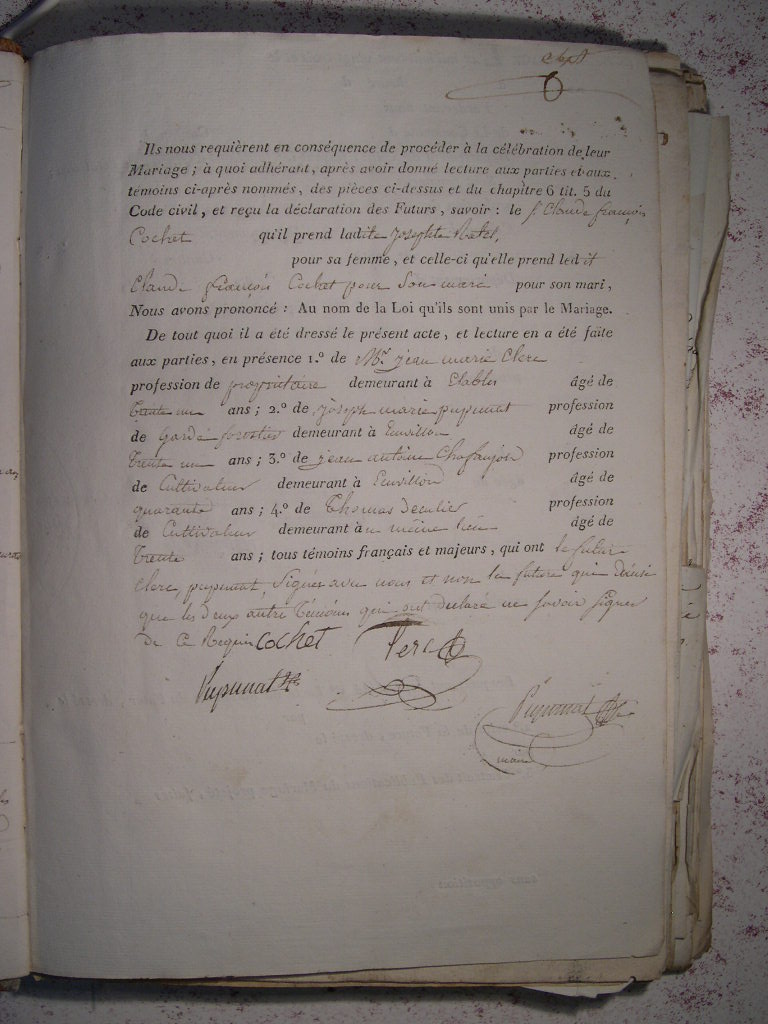 Ils nous requièrent en conséquence de procéder à la célébration de leur
Mariage ; à quoi adhérant, après avoir donné lecture aux parties et aux
témoins ci-après nommés, des pièces ci-dessus et du chapitre 6 tit. 5 du
Code civil, et reçu la déclaration des Futurs, savoir : le Sr Claude françois
Cochet qu'il prend ladite Josephte
pour sa femme, et celle-ci qu'elle prend ledit
Claude françois Cochet pour son mari pour son mari,
Nous avons prononcé : Au nom de la Loi qu'ils sont unis par le Mariage.
De tout quoi il a été dressé le présent acte, et lecture en a été faite
aux parties, en présence 1.º de Mr. jean marie Clerc
profession de propriétaire demeurant à Etables âgé de
trente un ans ; 2.º de joseph marie pupunat profession
de garde forestier demeurant à âgé de
trente un ans ; 3.º de jean antoine Chafanjon profession
de Cultivateur demeurant à âgé de
quarante ans ; 4.º de Thomas profession
de Cultivateur demeurant au même lieu âgé de
trente ans ; tous témoins français et majeurs, qui ont le futur
clerc, pupunat, signés avec nous et non la future qui
que les deux autre témoins qui ont déclaré ne savoir signer
de ce Requis Cochet Clerc
Pupunat
Pupunat
maire